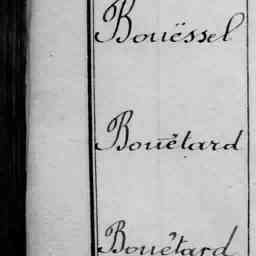 Bouëssel
Bouëtard
Bouëtard